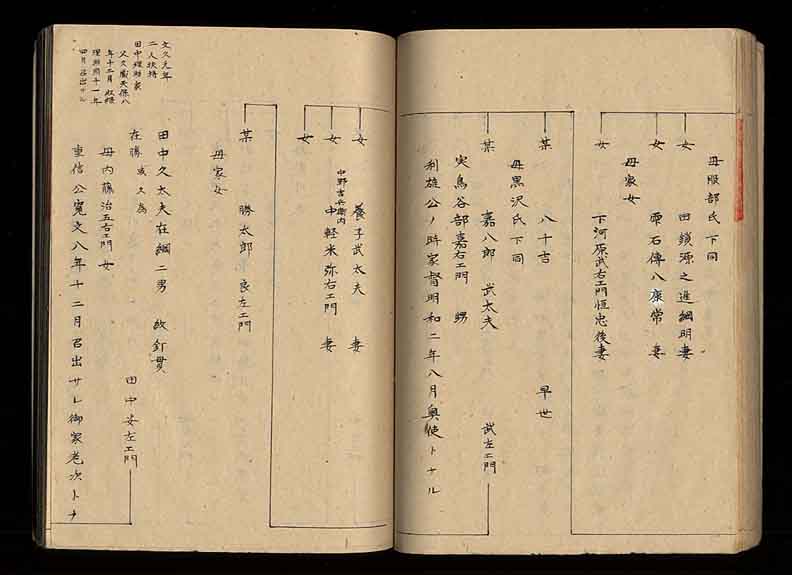 母服部氏下同
女 田鎖源之進綱明妻
女 雫石傳八康常 妻
母家女
女 下河原武右エ門恒忠後妻
某 八十吉 早世
母黒沢氏下同
某 嘉八郎 武太夫 武左エ門
実鳥谷部嘉右エ門 甥
利雄公ノ時家督明和二年八月奥使トナル
女 養子武太夫 妻
女 中野吉兵衛内
中軽米弥右エ門 妻
女
某 勝太郎 良左エ門
母家女
田中久太夫在綱二男 紋釘貫
在勝 或久為 田中安左エ門
母内藤治五右エ門女
重信公寛文八年十二月召出サレ御家老次トナ
文久元年
二人扶持
田中理助家
父久蔵天保八
年十二月
理助同十一年
四月召出サル